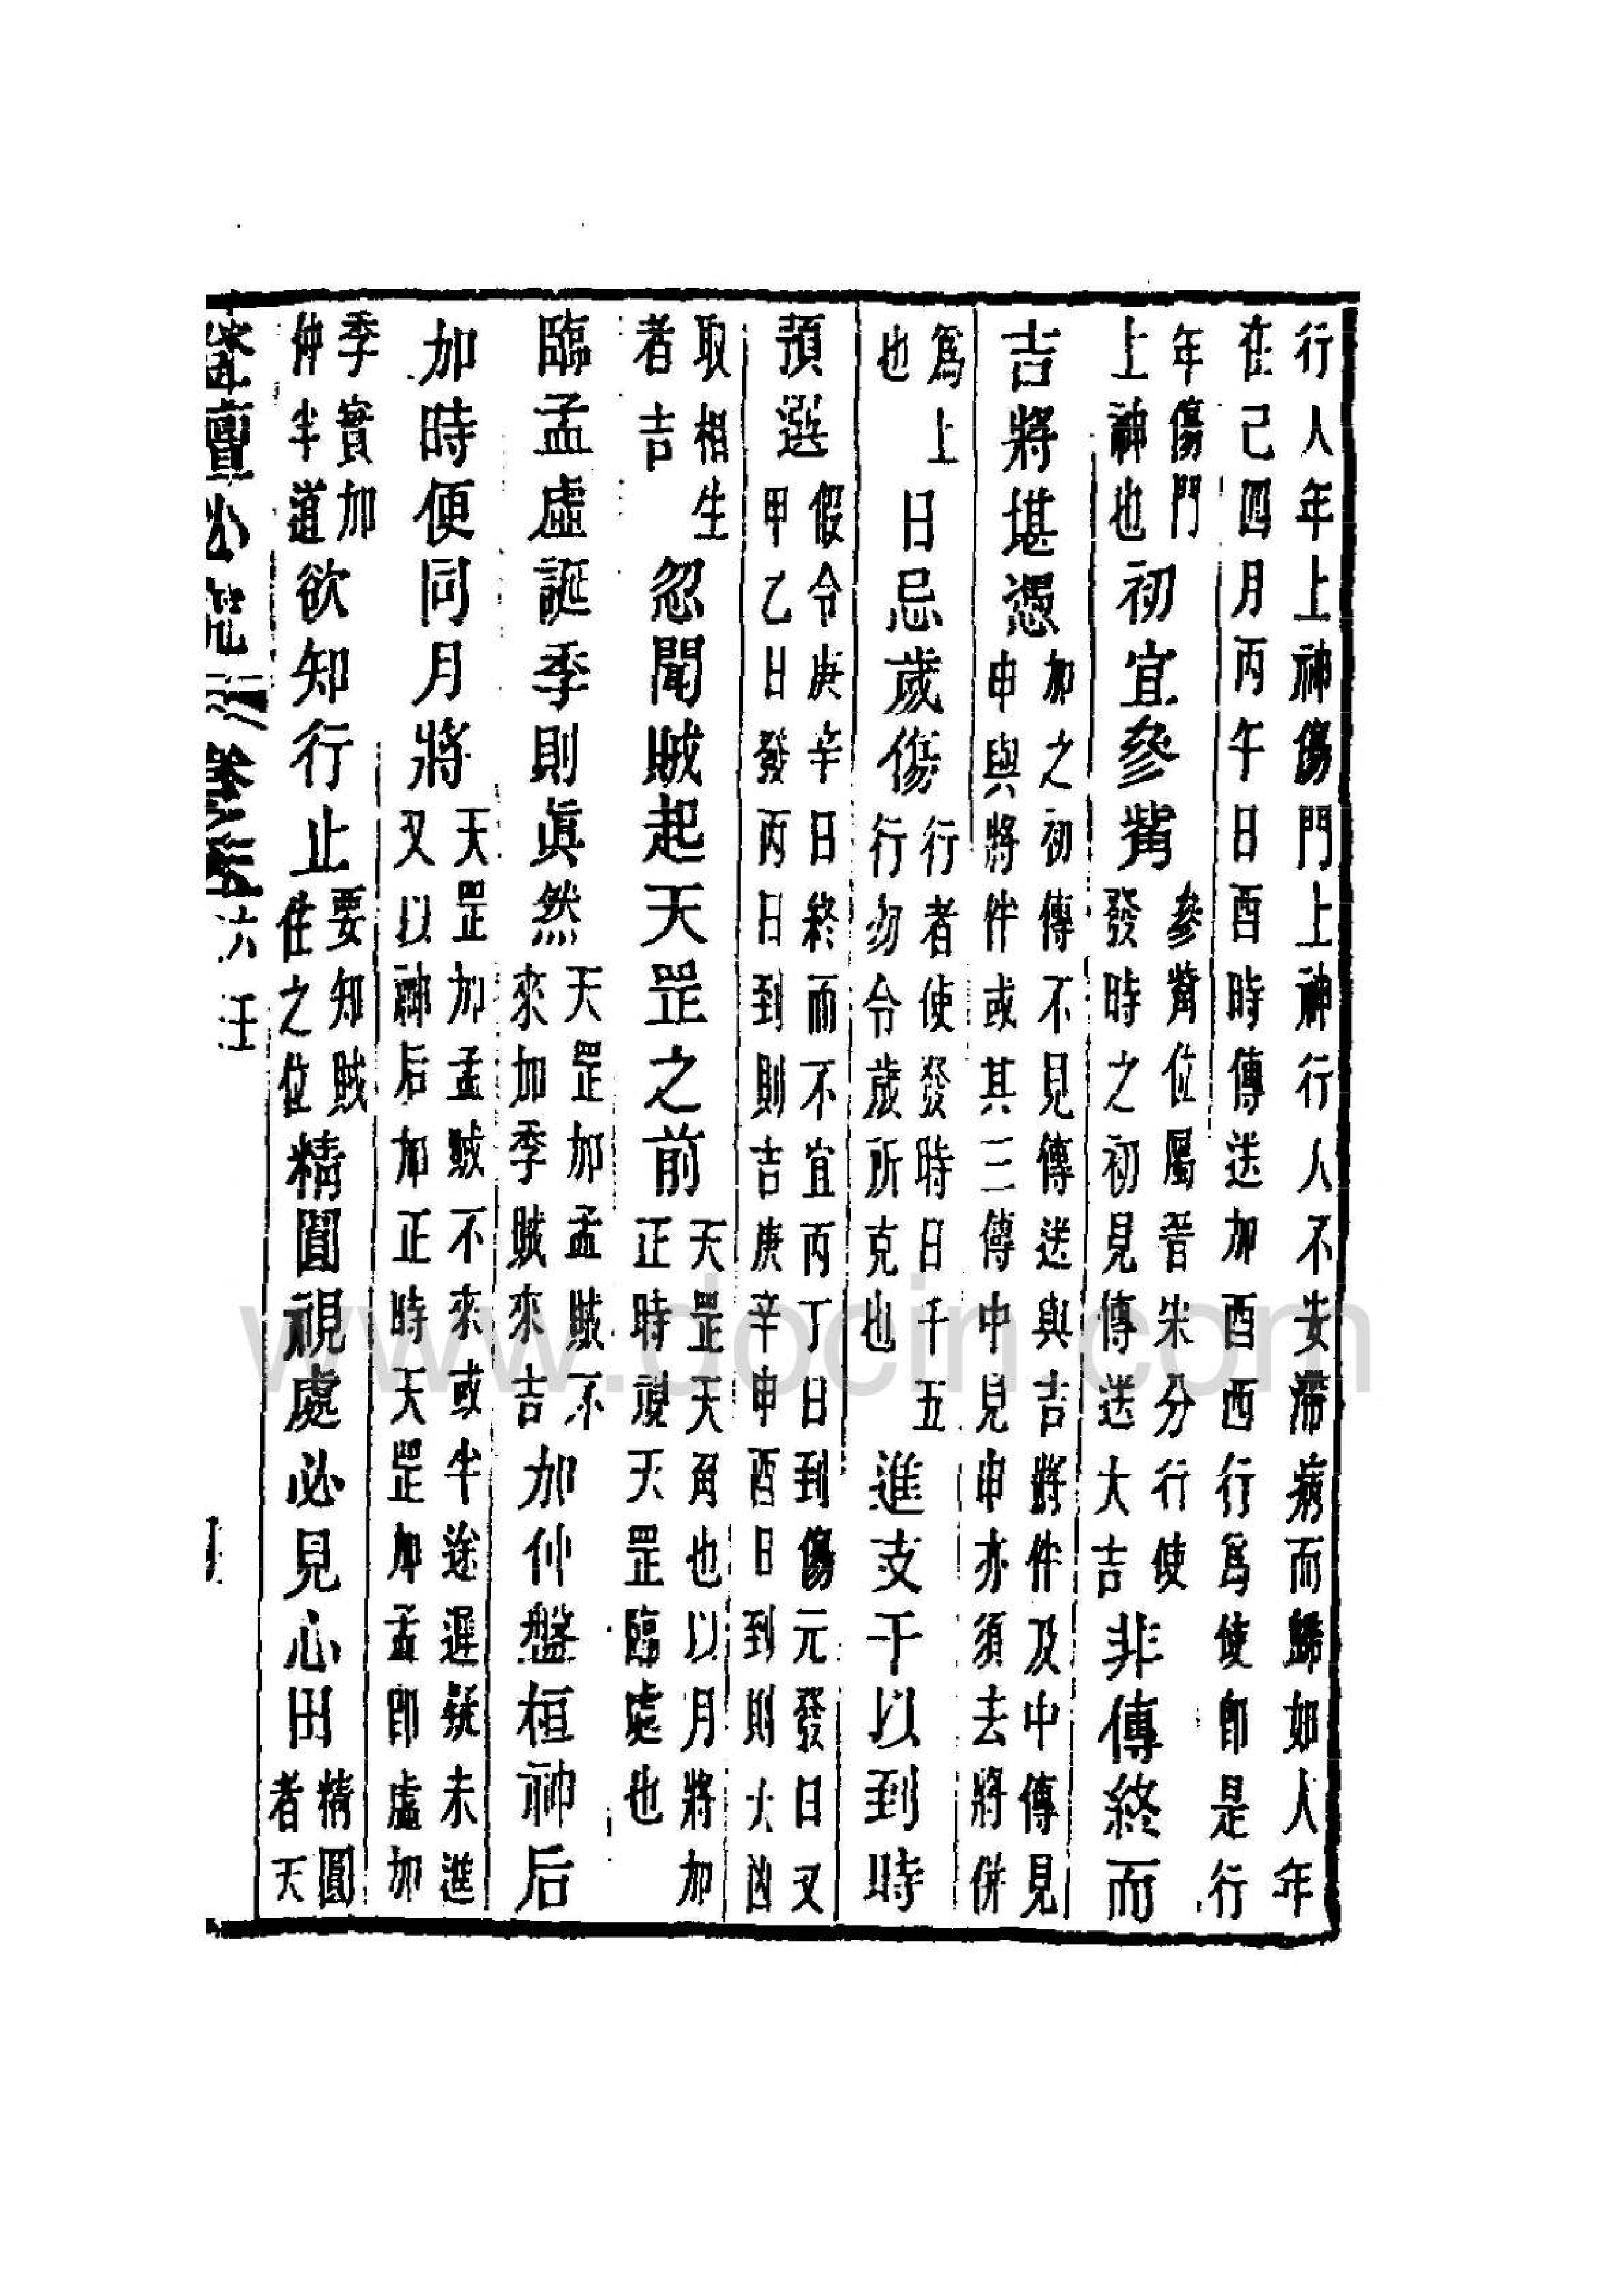 行人年上神傷門上神行人不安滯病而歸如人年
在己四月丙午日酉時傳送加酉西行爲使卽是行
年傷門
上神也
初宜參觜
參觜位屬晋朱分行使
發時之初見傳送大吉
非傳終而
吉將堪憑
加之初傳不見傳送與吉將件及中傳見
申與將件或其三傳中見申亦須去將併
爲上
也
日忌歲傷
行者使發時日千五
行勿令歲所克也
進支干以到時
預選
假令庚辛日終而不宜丙丁日到傷元發日又
甲乙日發丙日到則吉庚辛申酉日到則大凶
取相生
者吉
忽聞賊起天罡之前
天罡天角也以月將加
正時視天罡臨處也
臨孟虛誕季則眞然
天罡加孟賊不
來加季賊來吉
加仲盤桓神后
加時便同月將
天罡加孟賊不來或半途遲疑未進
又以神后加正時天罡加孟卽虛加
季實加
仲半道
欲知行止
要知賊
住之位
精圓視處必見心田
精圓
者天
六壬
www.docin.com